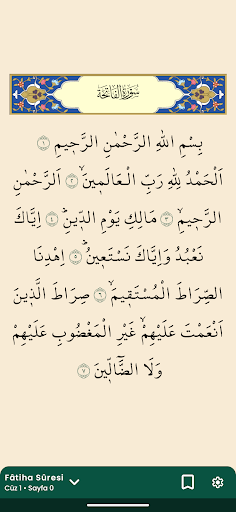 سورة الفاتحة
بِسْمِ اللهِ الرَّحْمٰنِ الرَّح۪يمِ ﴿١﴾
اَلْحَمْدُ لِلّٰهِ رَبِّ الْعَالَم۪ينَۙ ﴿٢﴾ اَلرَّحْمٰنِ
الرَّح۪يمِۙ ﴿٣﴾ مَالِكِ يَوْمِ الدّ۪ينِۜ ﴿٤﴾ اِيَّاكَ
نَعْبُدُ وَاِيَّاكَ نَسْتَع۪ينُۜ ﴿٥﴾ اِهْدِنَا
الصِّرَاطَ الْمُسْتَق۪يمَۙ ﴿٦﴾ صِرَاطَ الَّذ۪ينَ
اَنْعَمْتَ عَلَيْهِمْۙ غَيْرِ الْمَغْضُوبِ عَلَيْهِمْ
وَلَا الضَّٓالّ۪ينَ ﴿٧﴾
Fâtiha Sûresi
Cüz 1 • Sayfa 0